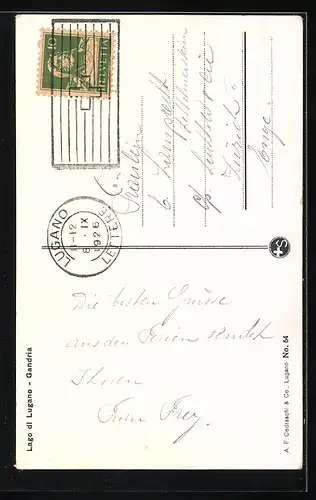 10
HELVETIA
LUGANO
11-12
8. IX
1926
LETTERE
Fräulein
Zürich
Enge.
Die besten Grüsse
aus den Ferien sendet
Ihnen
Frau Frey.
Lago di Lugano - Gandria
A. F. Cedraschi & Co., Lugano No. 64